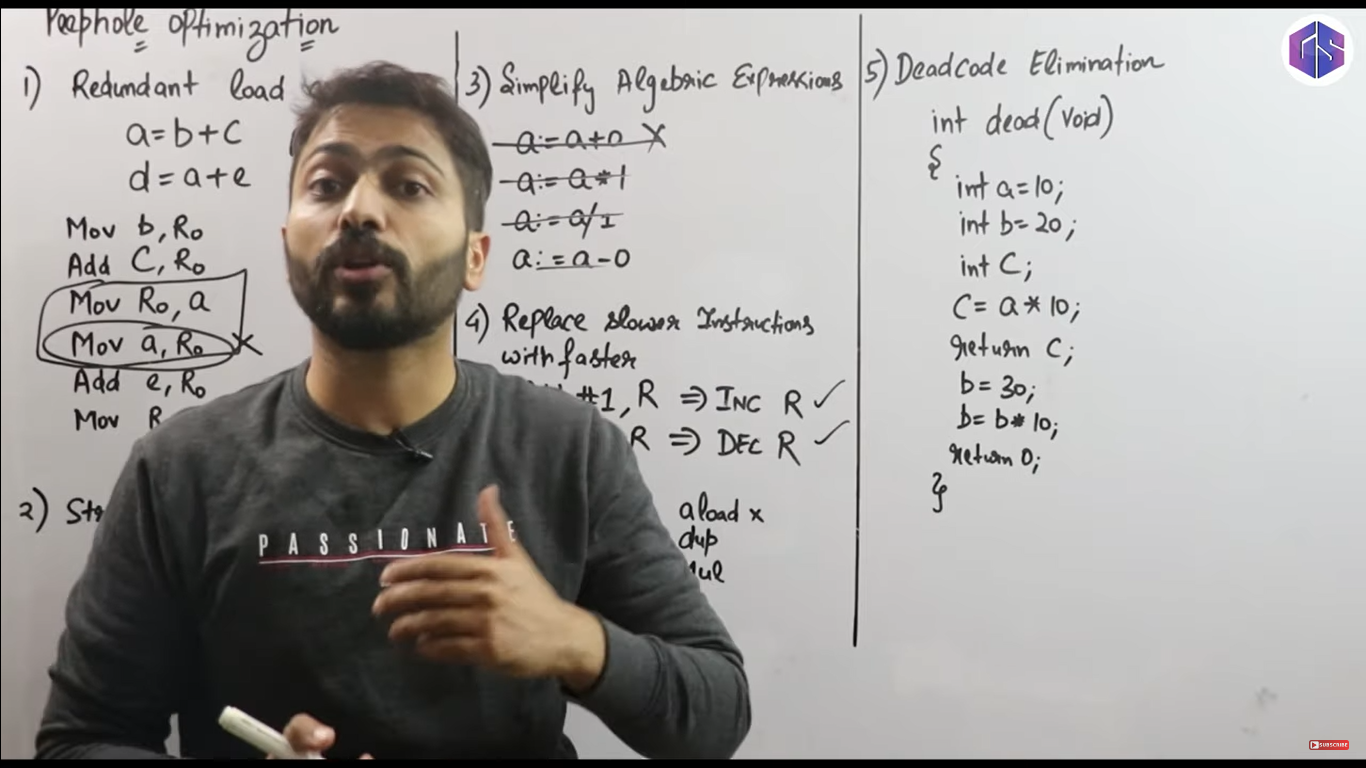 Peephole optimization
1) Redundant load
a=b+c
d=a+e
Mov b, R0
Add C, R0
Mov R0, a
Mov a, R0 X
Add e, R0
Mov R
2) Str
3) Simplify Algebric Expressions
a:=a+0 X
a:=a*1
a:=a/1
a:=a-0
4) Replace slower Instructions
with faster
#1, R ⇒ INC R ✓
R ⇒ DEC R ✓
aload x
dup
mul
5) Deadcode Elimination
int dead(void)
{
int a=10;
int b=20;
int C;
C= a*10;
return C;
b=30;
b=b*10;
return 0;
}
PASSIONATE
SUBSCRIBE